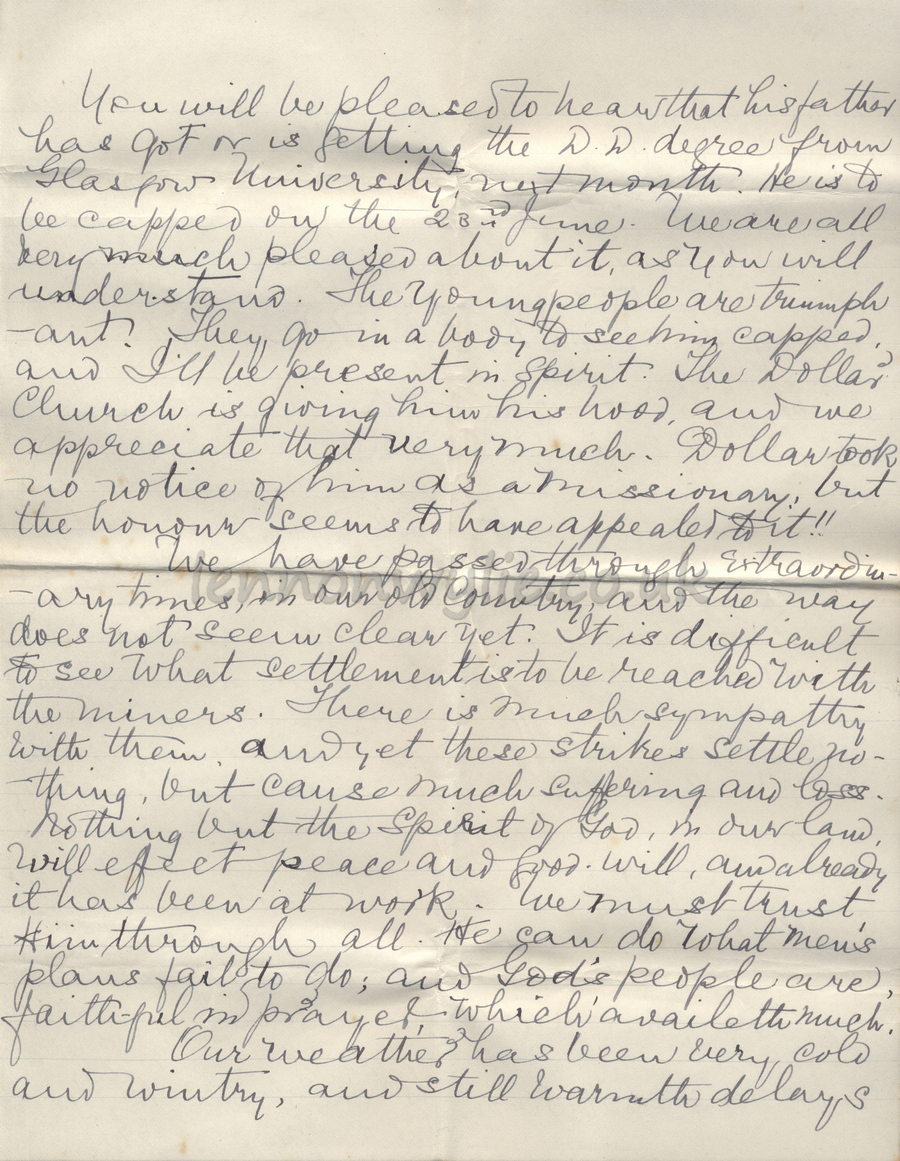 You will be pleased to hear that his father
has got or is getting the D.D. degree from
Glasgow University, next month. He is to
be capped on the 23rd June. We are all
very much pleased about it, as you will
understand. The young people are triumph
-ant! They go in a body to see him capped,
and I'll be present in spirit. The Dollar
Church is giving him his hood, and we
appreciate that very much. Dollar took
no notice of him as a missionary, but
the honour seems to have appealed to it!!
We have passed through extraordin-
lennomoglie.co.uk
-ary times, in our old country, and the way
does not seem clear yet. It is difficult
to see what settlement is to be reached with
the miners. There is much sympathy
with them, and yet these strikes settle no-
-thing, but cause much suffering and loss.
Nothing but the Spirit of God, in our land,
will effect peace and good-will, and already
it has been at work. We must trust
Him through all. He can do what men's
plans fail to do; and God's people are,
faithful in prayer, which availeth much.
Our weather has been very cold
and wintry, and still warmth delays